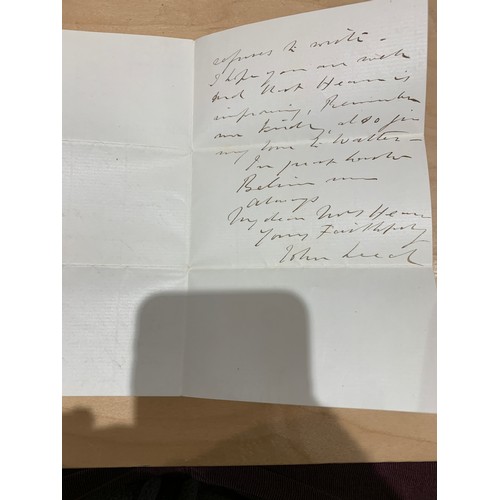 refuses to write -
I hope you are well
and that Hearn is
improving, Remember
me kindly, also give
my love to Walter -
In great haste
Believe me
Always
My dear Mrs Hearn
Yours Faithfully
John Leech